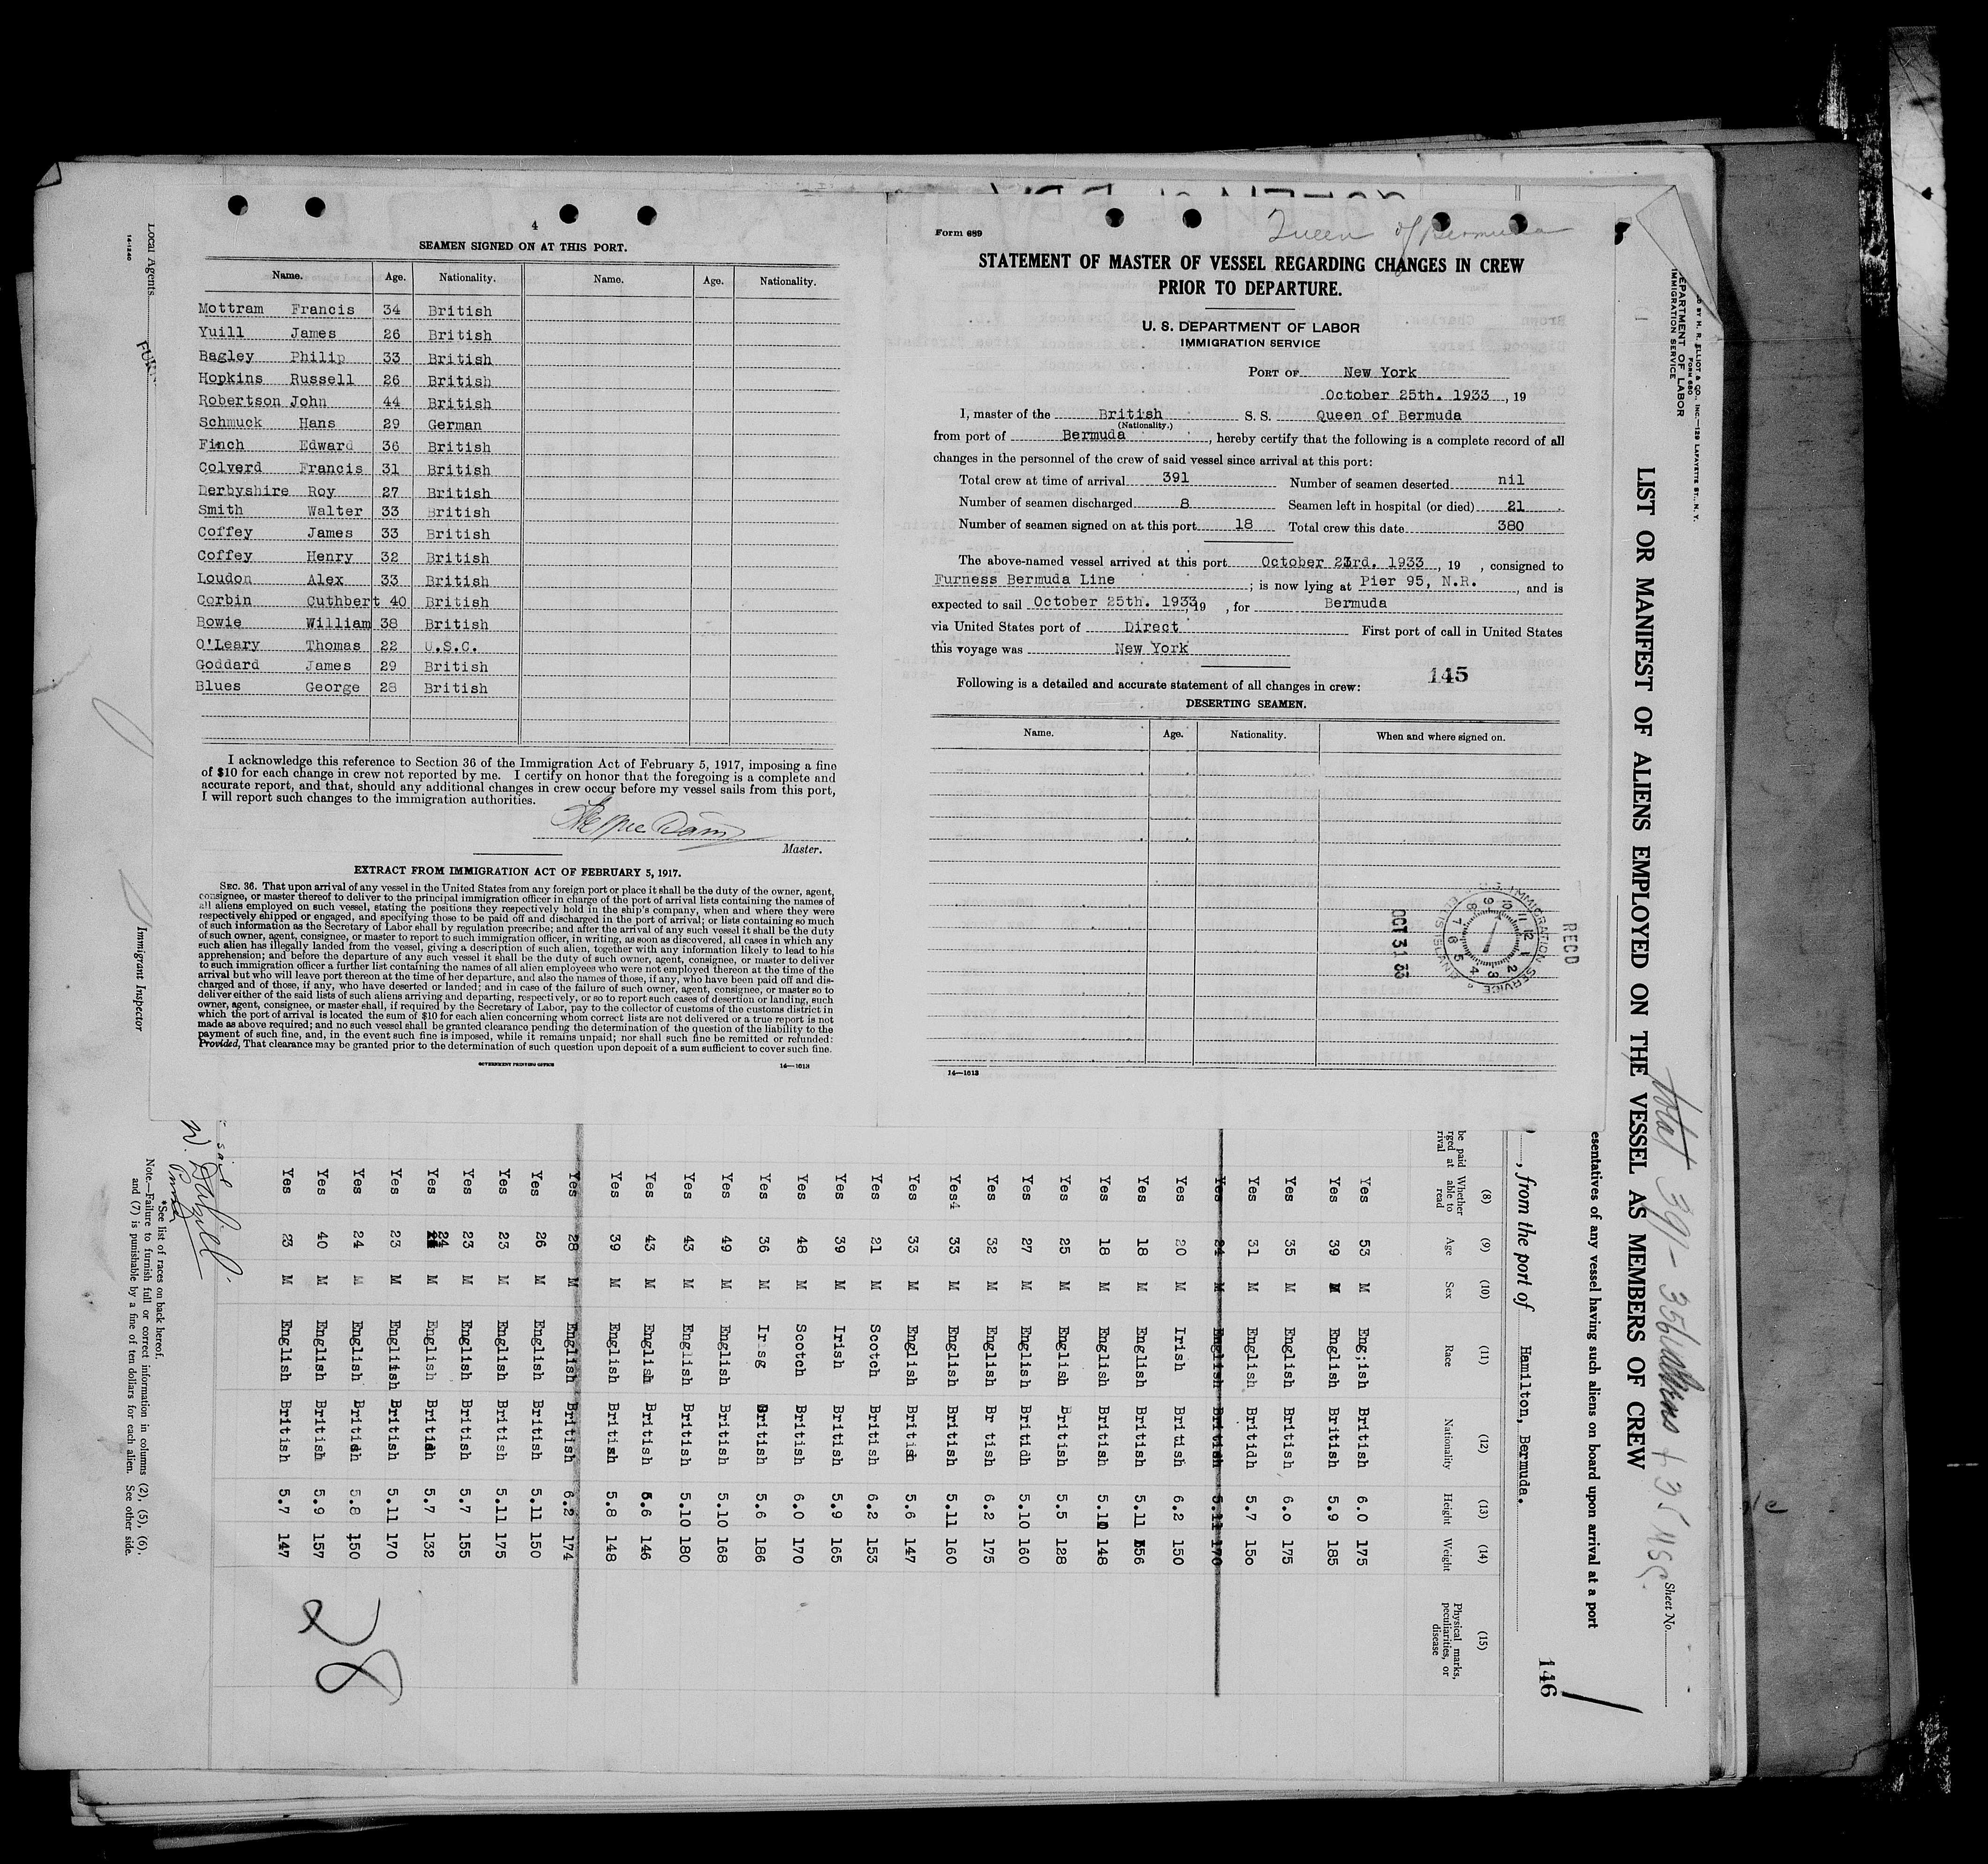 4
SEAMEN SIGNED ON AT THIS PORT.
Name. Age. Nationality. Name. Age. Nationality.
Mottram Francis 34 British
Yuill James 26 British
Bagley Philip 33 British
Hopkins Russell 26 British
Robertson John 44 British
Schmuck Hans 29 German
Finch Edward 36 British
Colverd Francis 31 British
Derbyshire Roy 27 British
Smith Walter 33 British
Coffey James 33 British
Coffey Henry 32 British
Loudon Alex 33 British
Corbin Cuthbert 40 British
Bowie William 38 British
O'Leary Thomas 22 U.S.C.
Goddard James 29 British
Blues George 28 British
I acknowledge this reference to Section 36 of the Immigration Act of February 5, 1917, imposing a fine
of $10 for each change in crew not reported by me. I certify on honor that the foregoing is a complete and
accurate report, and that, should any additional changes in crew occur before my vessel sails from this port,
I will report such changes to the immigration authorities.
Master.
EXTRACT FROM IMMIGRATION ACT OF FEBRUARY 5, 1917.
SEC. 36. That upon arrival of any vessel in the United States from any foreign port or place it shall be the duty of the owner, agent,
consignee, or master thereof to deliver to the principal immigration officer in charge of the port of arrival lists containing the names of
all aliens employed on such vessel, stating the positions they respectively hold in the ship's company, when and where they were
respectively shipped or engaged, and specifying those to be paid off and discharged in the port of arrival; or lists containing so much
of such information as the Secretary of Labor shall by regulation prescribe; and after the arrival of any such vessel it shall be the duty
of such owner, agent, consignee, or master to report to such immigration officer, in writing, as soon as discovered, all cases in which any
such alien has illegally landed from the vessel, giving a description of such alien, together with any information likely to lead to his
apprehension; and before the departure of any such vessel it shall be the duty of such owner, agent, consignee, or master to deliver
to such immigration officer a further list containing the names of all alien employees who were not employed thereon at the time of the
arrival but who will leave port thereon at the time of her departure, and also the names of those, if any, who have been paid off and dis-
charged and of those, if any, who have deserted or landed; and in case of the failure of such owner, agent, consignee, or master so to
deliver either of the said lists of such aliens arriving and departing, respectively, or so to report such cases of desertion or landing, such
owner, agent, consignee, or master shall, if required by the Secretary of Labor, pay to the collector of customs of the customs district in
which the port of arrival is located the sum of $10 for each alien concerning whom correct lists are not delivered or a true report is not
made as above required; and no such vessel shall be granted clearance pending the determination of the question of the liability to the
payment of such fine, and, in the event such fine is imposed, while it remains unpaid; nor shall such fine be remitted or refunded:
Provided, That clearance may be granted prior to the determination of such question upon deposit of a sum sufficient to cover such fine.
GOVERNMENT PRINTING OFFICE 14—1613
Form 689
Queen of Bermuda
STATEMENT OF MASTER OF VESSEL REGARDING CHANGES IN CREW
PRIOR TO DEPARTURE.
U. S. DEPARTMENT OF LABOR
IMMIGRATION SERVICE
PORT OF New York
October 25th. 1933, 19
I, master of the British S. S. Queen of Bermuda
(Nationality.)
from port of Bermuda, hereby certify that the following is a complete record of all
changes in the personnel of the crew of said vessel since arrival at this port:
Total crew at time of arrival 391 Number of seamen deserted nil
Number of seamen discharged 8 Seamen left in hospital (or died) 21
Number of seamen signed on at this port 18 Total crew this date 380
The above-named vessel arrived at this port October 23rd. 1933, 19 , consigned to
Furness Bermuda Line; is now lying at Pier 95, N.R., and is
expected to sail October 25th. 1933, 19 , for Bermuda
via United States port of Direct First port of call in United States
this voyage was New York
145
Following is a detailed and accurate statement of all changes in crew:
DESERTING SEAMEN.
Name. Age. Nationality. When and where signed on.
RECD
U.S. IMMIGRATION SERVICE
OCT 31 33
14—1613
LIST OR MANIFEST OF ALIENS EMPLOYED ON THE VESSEL AS MEMBERS OF CREW
Total 391 - 356 aliens + 35 USC.
Sheet No.
FORM 680
EPARTMENT OF LABOR
IMMIGRATION SERVICE
D BY H. R. ELLIOT & CO., INC.—129 LAFAYETTE ST., N. Y.
esentatives of any vessel having such aliens on board upon arrival at a port
146
, from the port of Hamilton, Bermuda.
(8) (9) (10) (11) (12) (13) (14) (15)
be paid rged at rival Whether able to read Age Sex Race Nationality Height Weight Physical marks, peculiarities, or disease
Yes 53 M Eng;ish British 6.0 175
Yes 39 M English British 5.9 185
Yes 35 M English British 6.o 175
Yes 31 M English Britidh 5.7 15o
Yes 24 M English British 5.11 170
Yes 20 M Irish British 6.2 150
Yes 18 M English British 5.11 156
Yes 18 M English British 5.10 148
Yes 25 M English British 5.5 128
Yes 27 M English Britidh 5.10 160
Yes 32 M English Br tish 6.2 175
Yes4 33 M English British 5.11 160
Yes 33 M English British 5.6 147
Yes 21 M Scotch British 6.2 153
Yes 39 M Irish British 5.9 165
Yes 48 M Scotch British 6.0 170
Yes 36 M Irisg British 5.6 186
Yes 49 M English British 5.10 168
Yes 43 M English British 5.10 180
Yes 43 M English British 5.6 146
Yes 39 M English British 5.8 148
Yes 28 M English British 6.2 174
Yes 26 M English British 5.11 150
Yes 23 M English British 5.11 175
Yes 23 M English British 5.7 155
Yes 24 M English British 5.7 132
Yes 23 M English British 5.11 170
Yes 24 M English British 5.8 150
Yes 40 M English British 5.9 157
Yes 23 M English British 5.7 147
28
*See list of races on back hereof.
Note.—Failure to furnish full or correct information in columns (2), (5), (6),
and (7) is punishable by a fine of ten dollars for each alien. See other side.
Immigrant Inspector
Local Agents
FURN
14-1240